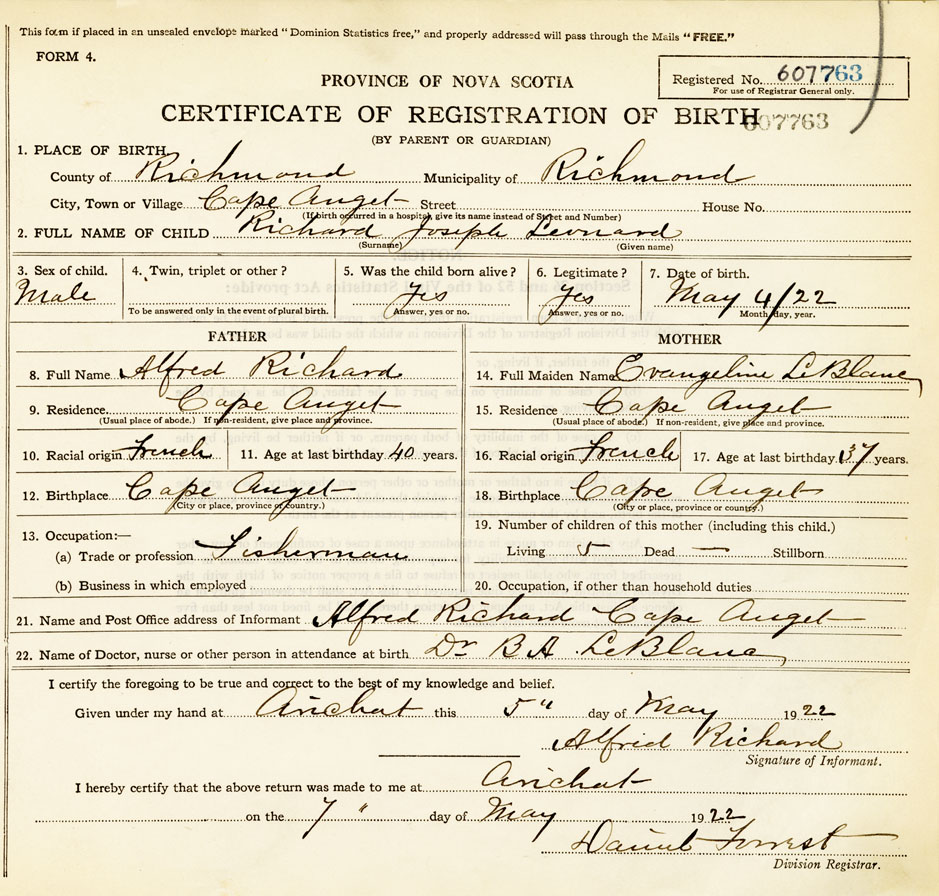 This form if placed in an unsealed envelope marked "Dominion Statistics free," and properly addressed will pass through the Mails "FREE."
FORM 4.
Registered No. 607763
For use of Registrar General only.
PROVINCE OF NOVA SCOTIA
CERTIFICATE OF REGISTRATION OF BIRTH
607763
(BY PARENT OR GUARDIAN)
1. PLACE OF BIRTH
County of Richmond Municipality of Richmond
City, Town or Village Cape Auget Street House No.
(If birth occurred in a hospital, give its name instead of Street and Number)
2. FULL NAME OF CHILD Richard Joseph Leonard
(Surname) (Given name)
3. Sex of child. 4. Twin, triplet or other? 5. Was the child born alive? 6. Legitimate? 7. Date of birth.
Male Yes Yes May 4/22
To be answered only in the event of plural birth. Answer, yes or no. Answer, yes or no. Month, day, year.
FATHER MOTHER
8. Full Name Alfred Richard 14. Full Maiden Name Evangeline LeBlanc
9. Residence Cape Auget 15. Residence Cape Auget
(Usual place of abode.) If non-resident, give place and province. (Usual place of abode.) If non-resident, give place and province.
10. Racial origin French 11. Age at last birthday 40 years. 16. Racial origin French 17. Age at last birthday 37 years.
12. Birthplace Cape Auget 18. Birthplace Cape Auget
(City or place, province or country.) (City or place, province or country.)
13. Occupation:— 19. Number of children of this mother (including this child.)
(a) Trade or profession Fisherman Living 5 Dead — Stillborn
(b) Business in which employed 20. Occupation, if other than household duties
21. Name and Post Office address of Informant Alfred Richard Cape Auget
22. Name of Doctor, nurse or other person in attendance at birth Dr B A LeBlanc
I certify the foregoing to be true and correct to the best of my knowledge and belief.
Given under my hand at Arichat this 5" day of May 1922
Alfred Richard
Signature of Informant.
I hereby certify that the above return was made to me at Arichat
on the 7 " day of May 1922
Daniel Forrest
Division Registrar.